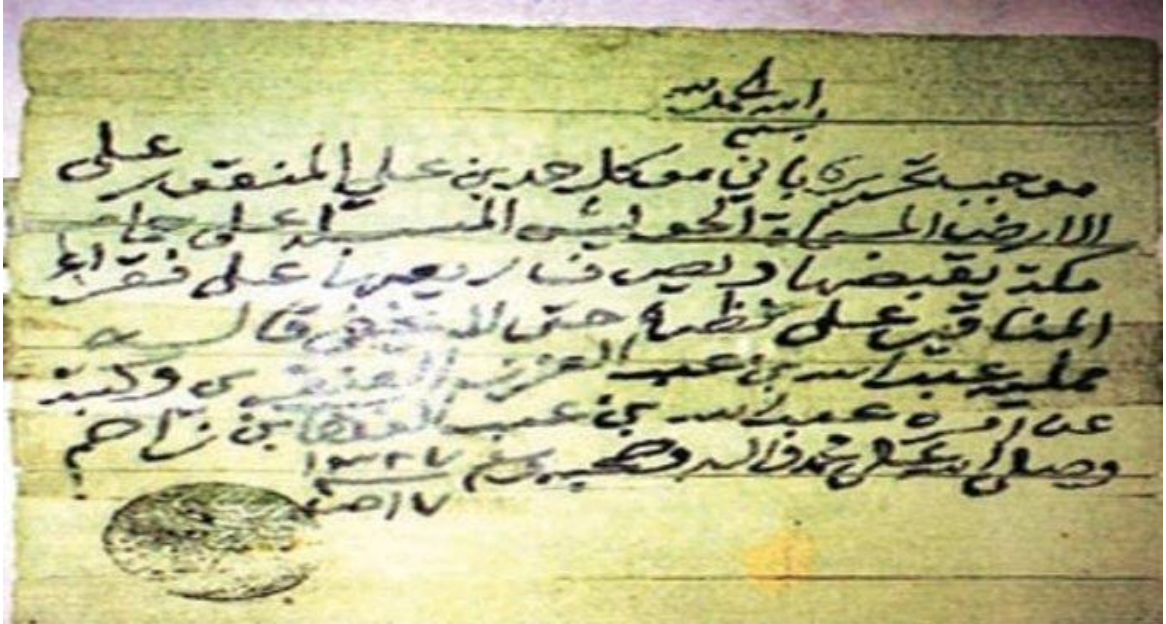 الحمد لله
بسم
موجب تحريره باني موكل حمد بن علي المنقور على
الارض المسماة الحوايش المسبلة على حمام
مكة يقبضها ويصرف ريعها على فقراء
المناقير على نظره حتى لا يخفى قال
ممليه عبدالله بن عبد العزيز العنقري وكتبه
عن امره عبدالله بن عبد الوهاب بن زاحم
وصلى الله على محمد واله وصحبه وسلم ١٣٤٧
٧